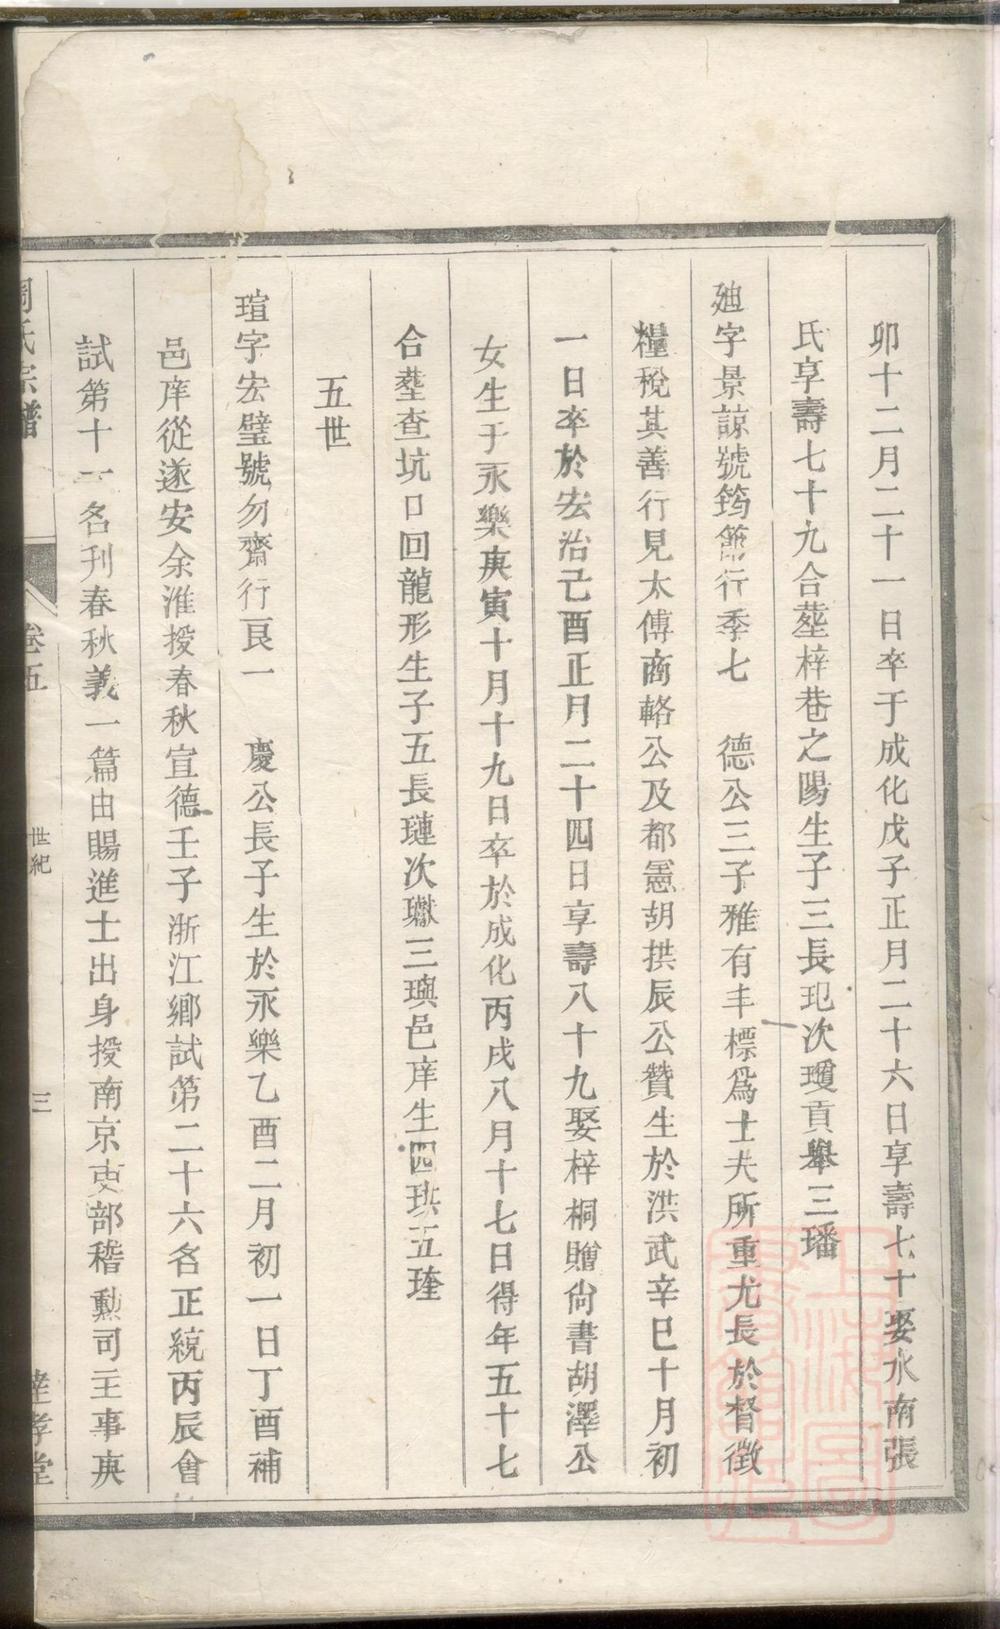 卯十二月二十一日卒于成化戊子正月二十六日享壽七十娶水南張
氏享壽七十九合塟梓巷之陽生子三長玘次瓊貢舉三璠
廸字景諒號筠節行季七　德公三子雅有丰標爲士夫所重尤長於督徵
糧稅其善行見太傅商輅公及都憲胡拱辰公贊生於洪武辛巳十月初
一日卒於宏治己酉正月二十四日享壽八十九娶梓桐贈尙書胡澤公
女生于永樂庚寅十月十九日卒於成化丙戌八月十七日得年五十七
合塟查坑口回龍形生子五長璉次瓛三璵邑庠生四珙五琒
五世
瑄字宏璧號勿齋行良一　慶公長子生於永樂乙酉二月初一日丁酉補
邑庠從遂安余淮授春秋宣德壬子浙江鄉試第二十六名正統丙辰會
試第十一名刊春秋義一篇由賜進士出身授南京吏部稽勳司主事庚
周氏宗譜　卷五　世紀　三　達孝堂